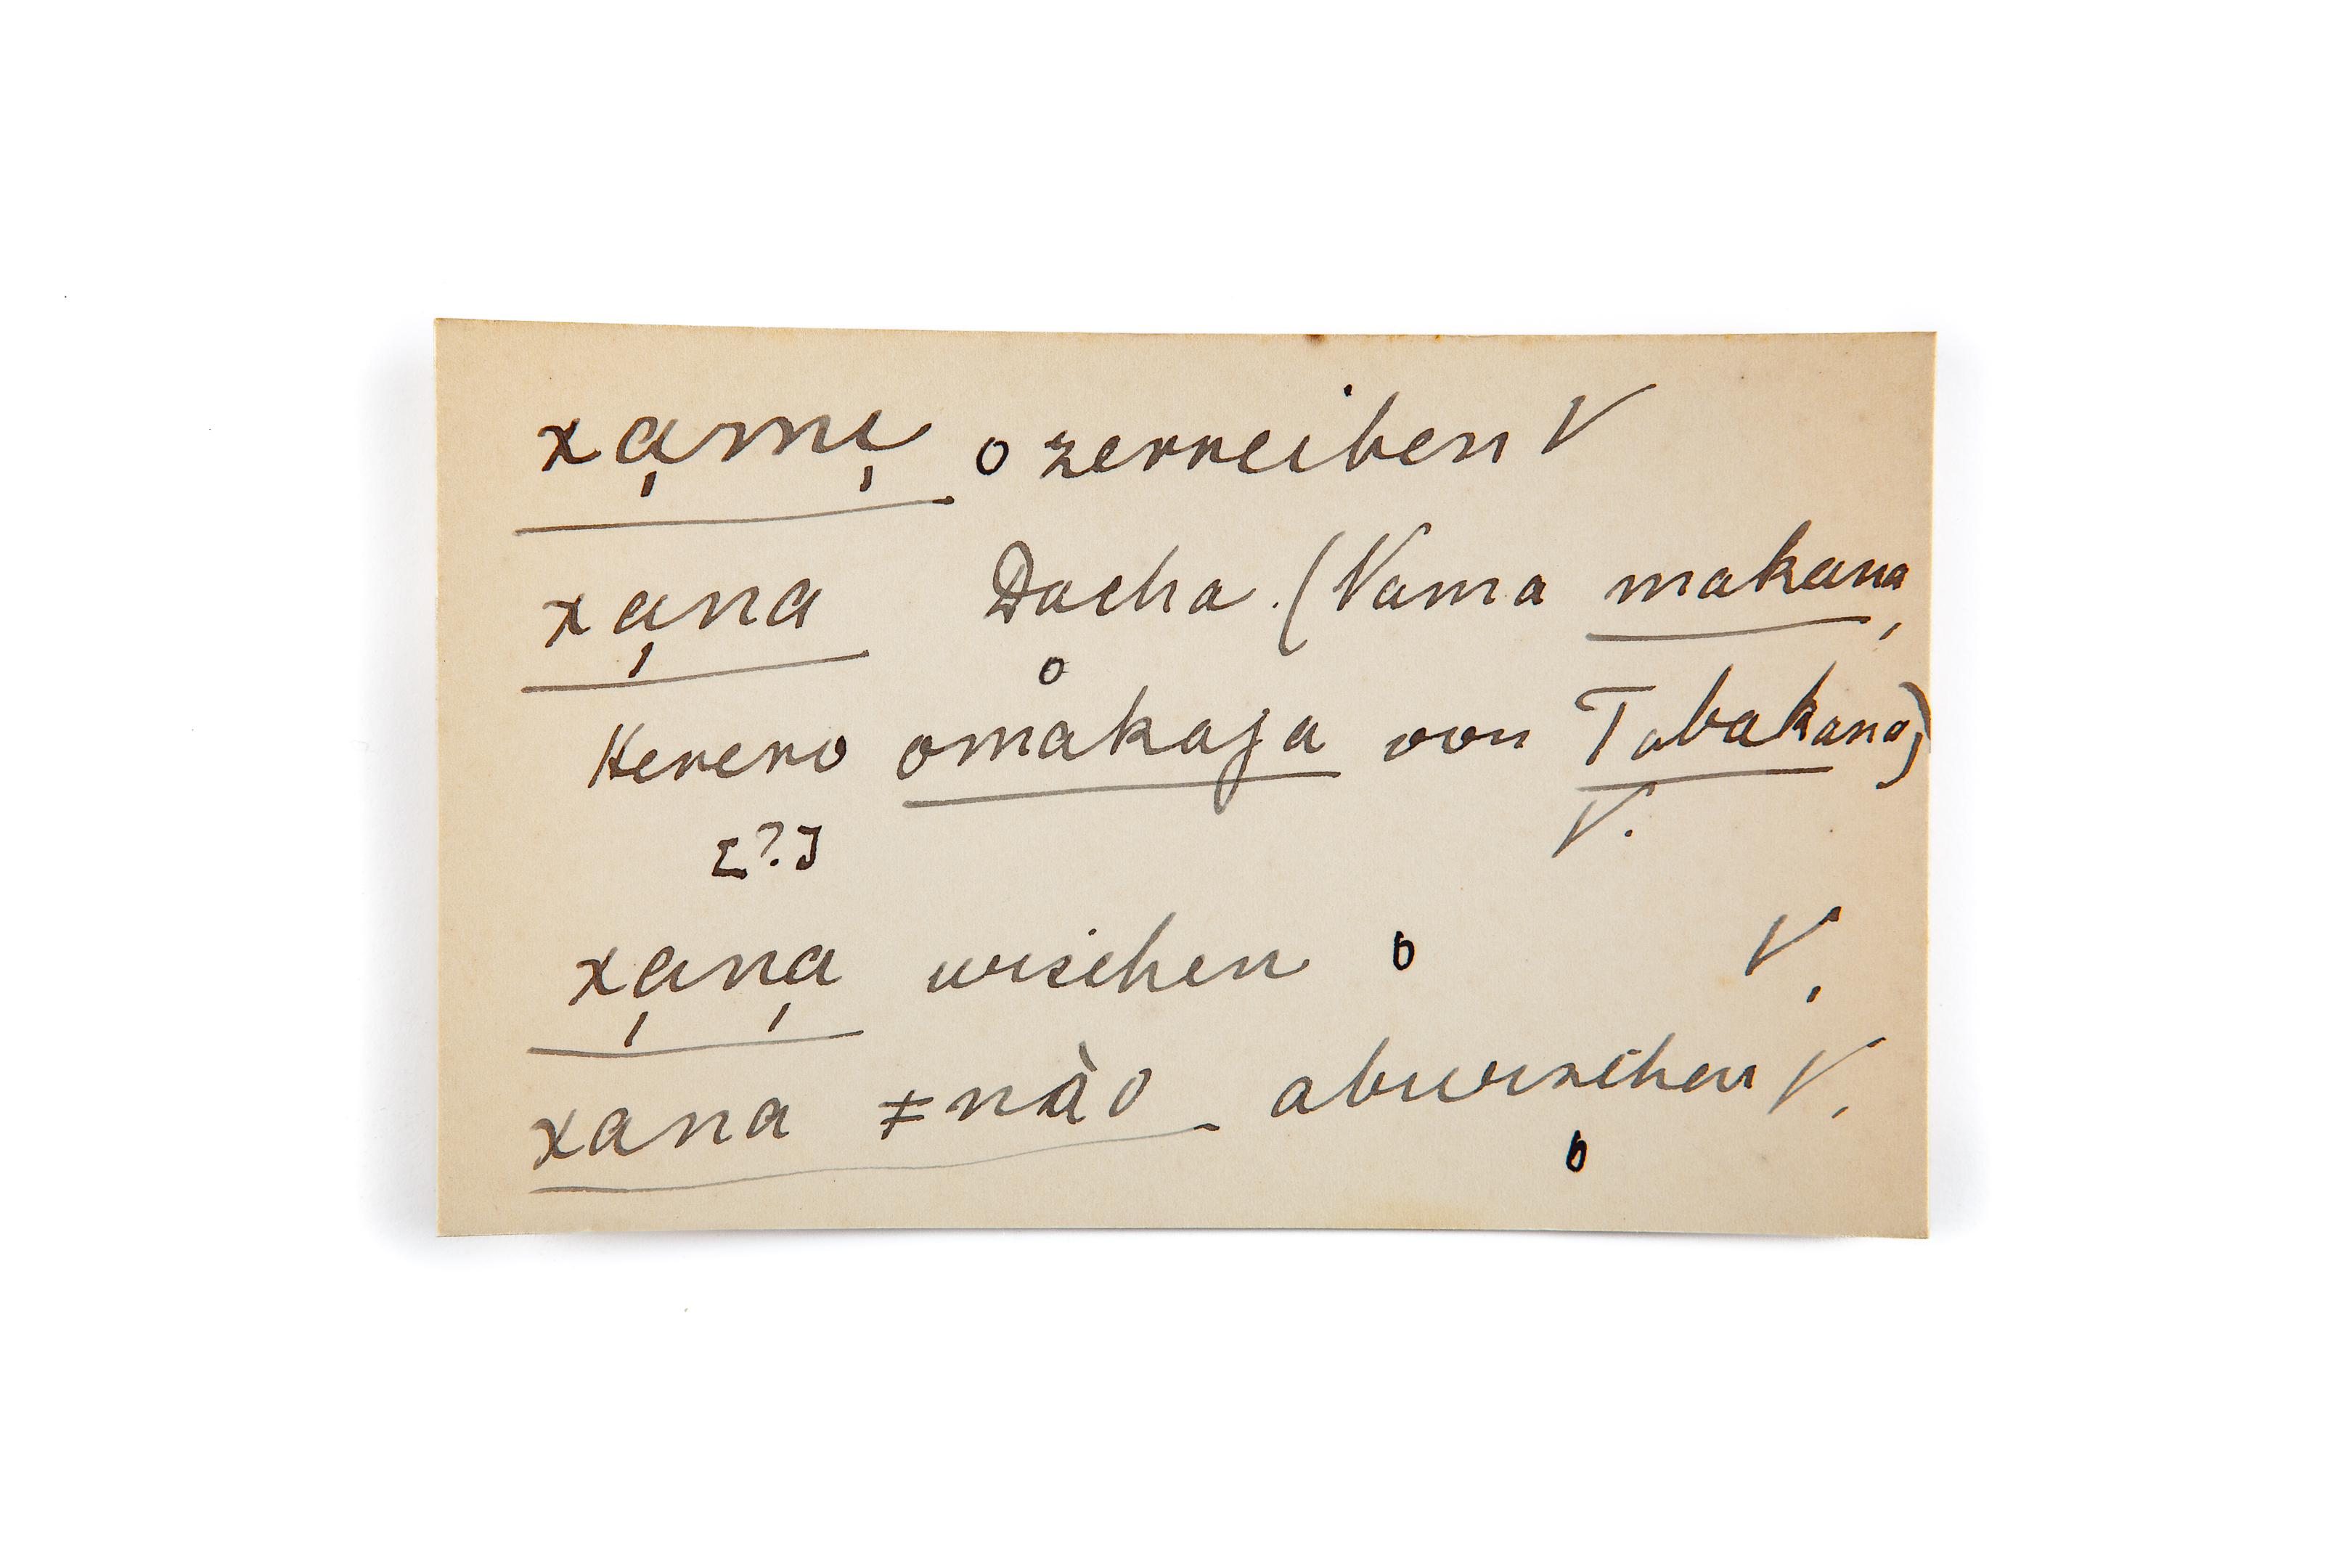 xa̩mi̩ o zerreiben V
xa̩na Dacha . (Nama makana,
o
Herero omakaja von Tabakana)
[?] V.
xa̩na̩ wischen o V,
xana ǂnào abwischen V,
o